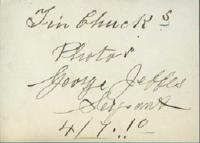 Tin Chuck s
Photos
George Jeffes
Sergeant
4/7.10